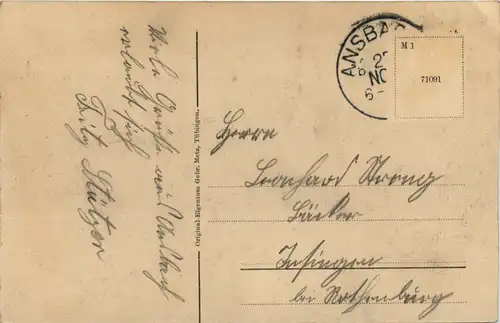 Viele Grüße aus Ansbach
erlaubt sich
Fritz Stützer
Original-Eigentum Gebr. Metz, Tübingen.
ANSBAC
NO
M 1
71091
Herrn
Leonhard Strong
Bäcker
Insingen
bei Rothenburg